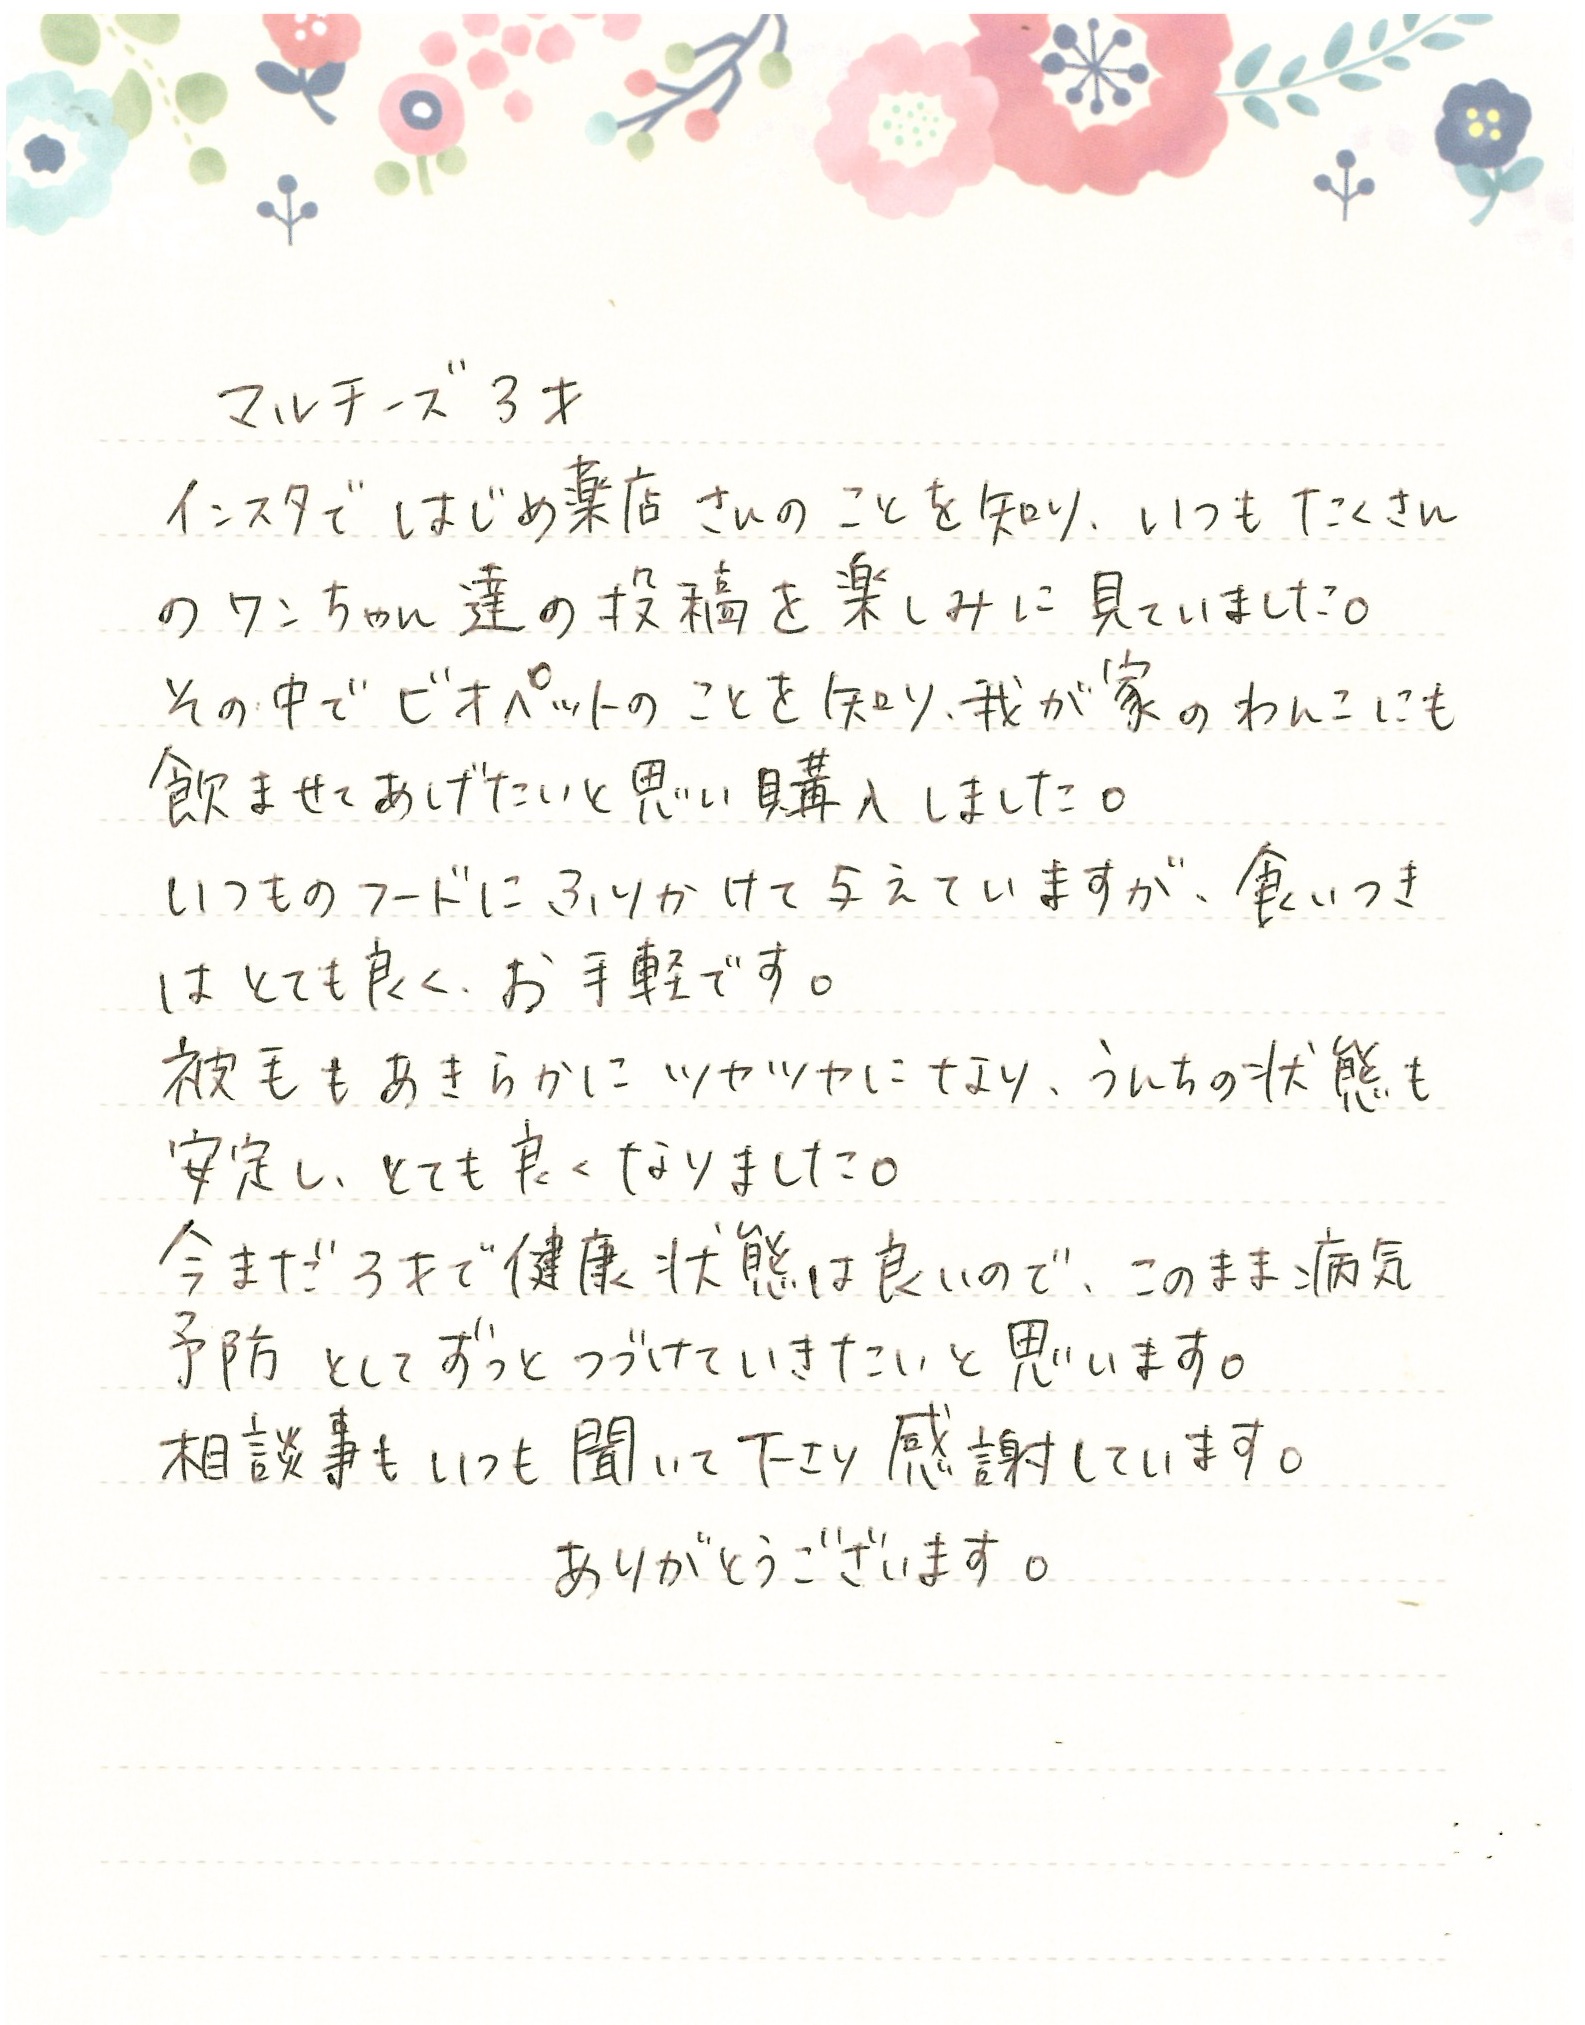 マルチーズ3才
インスタではじめ薬店さんのことを知り、いつもたくさん
のワンちゃん達の投稿を楽しみに見ていました。
その中でビオペットのことを知り、我が家のわんこにも
飲ませてあげたいと思い購入しました。
いつものフードにふりかけて与えていますが、食いつき
はとても良く、お手軽です。
被毛もあきらかにツヤツヤになり、うんちの状態も
安定し、とても良くなりました。
今まだ3才で健康状態は良いので、このまま病気
予防としてずっとつづけていきたいと思います。
相談事もいつも聞いて下さり感謝しています。
ありがとうございます。